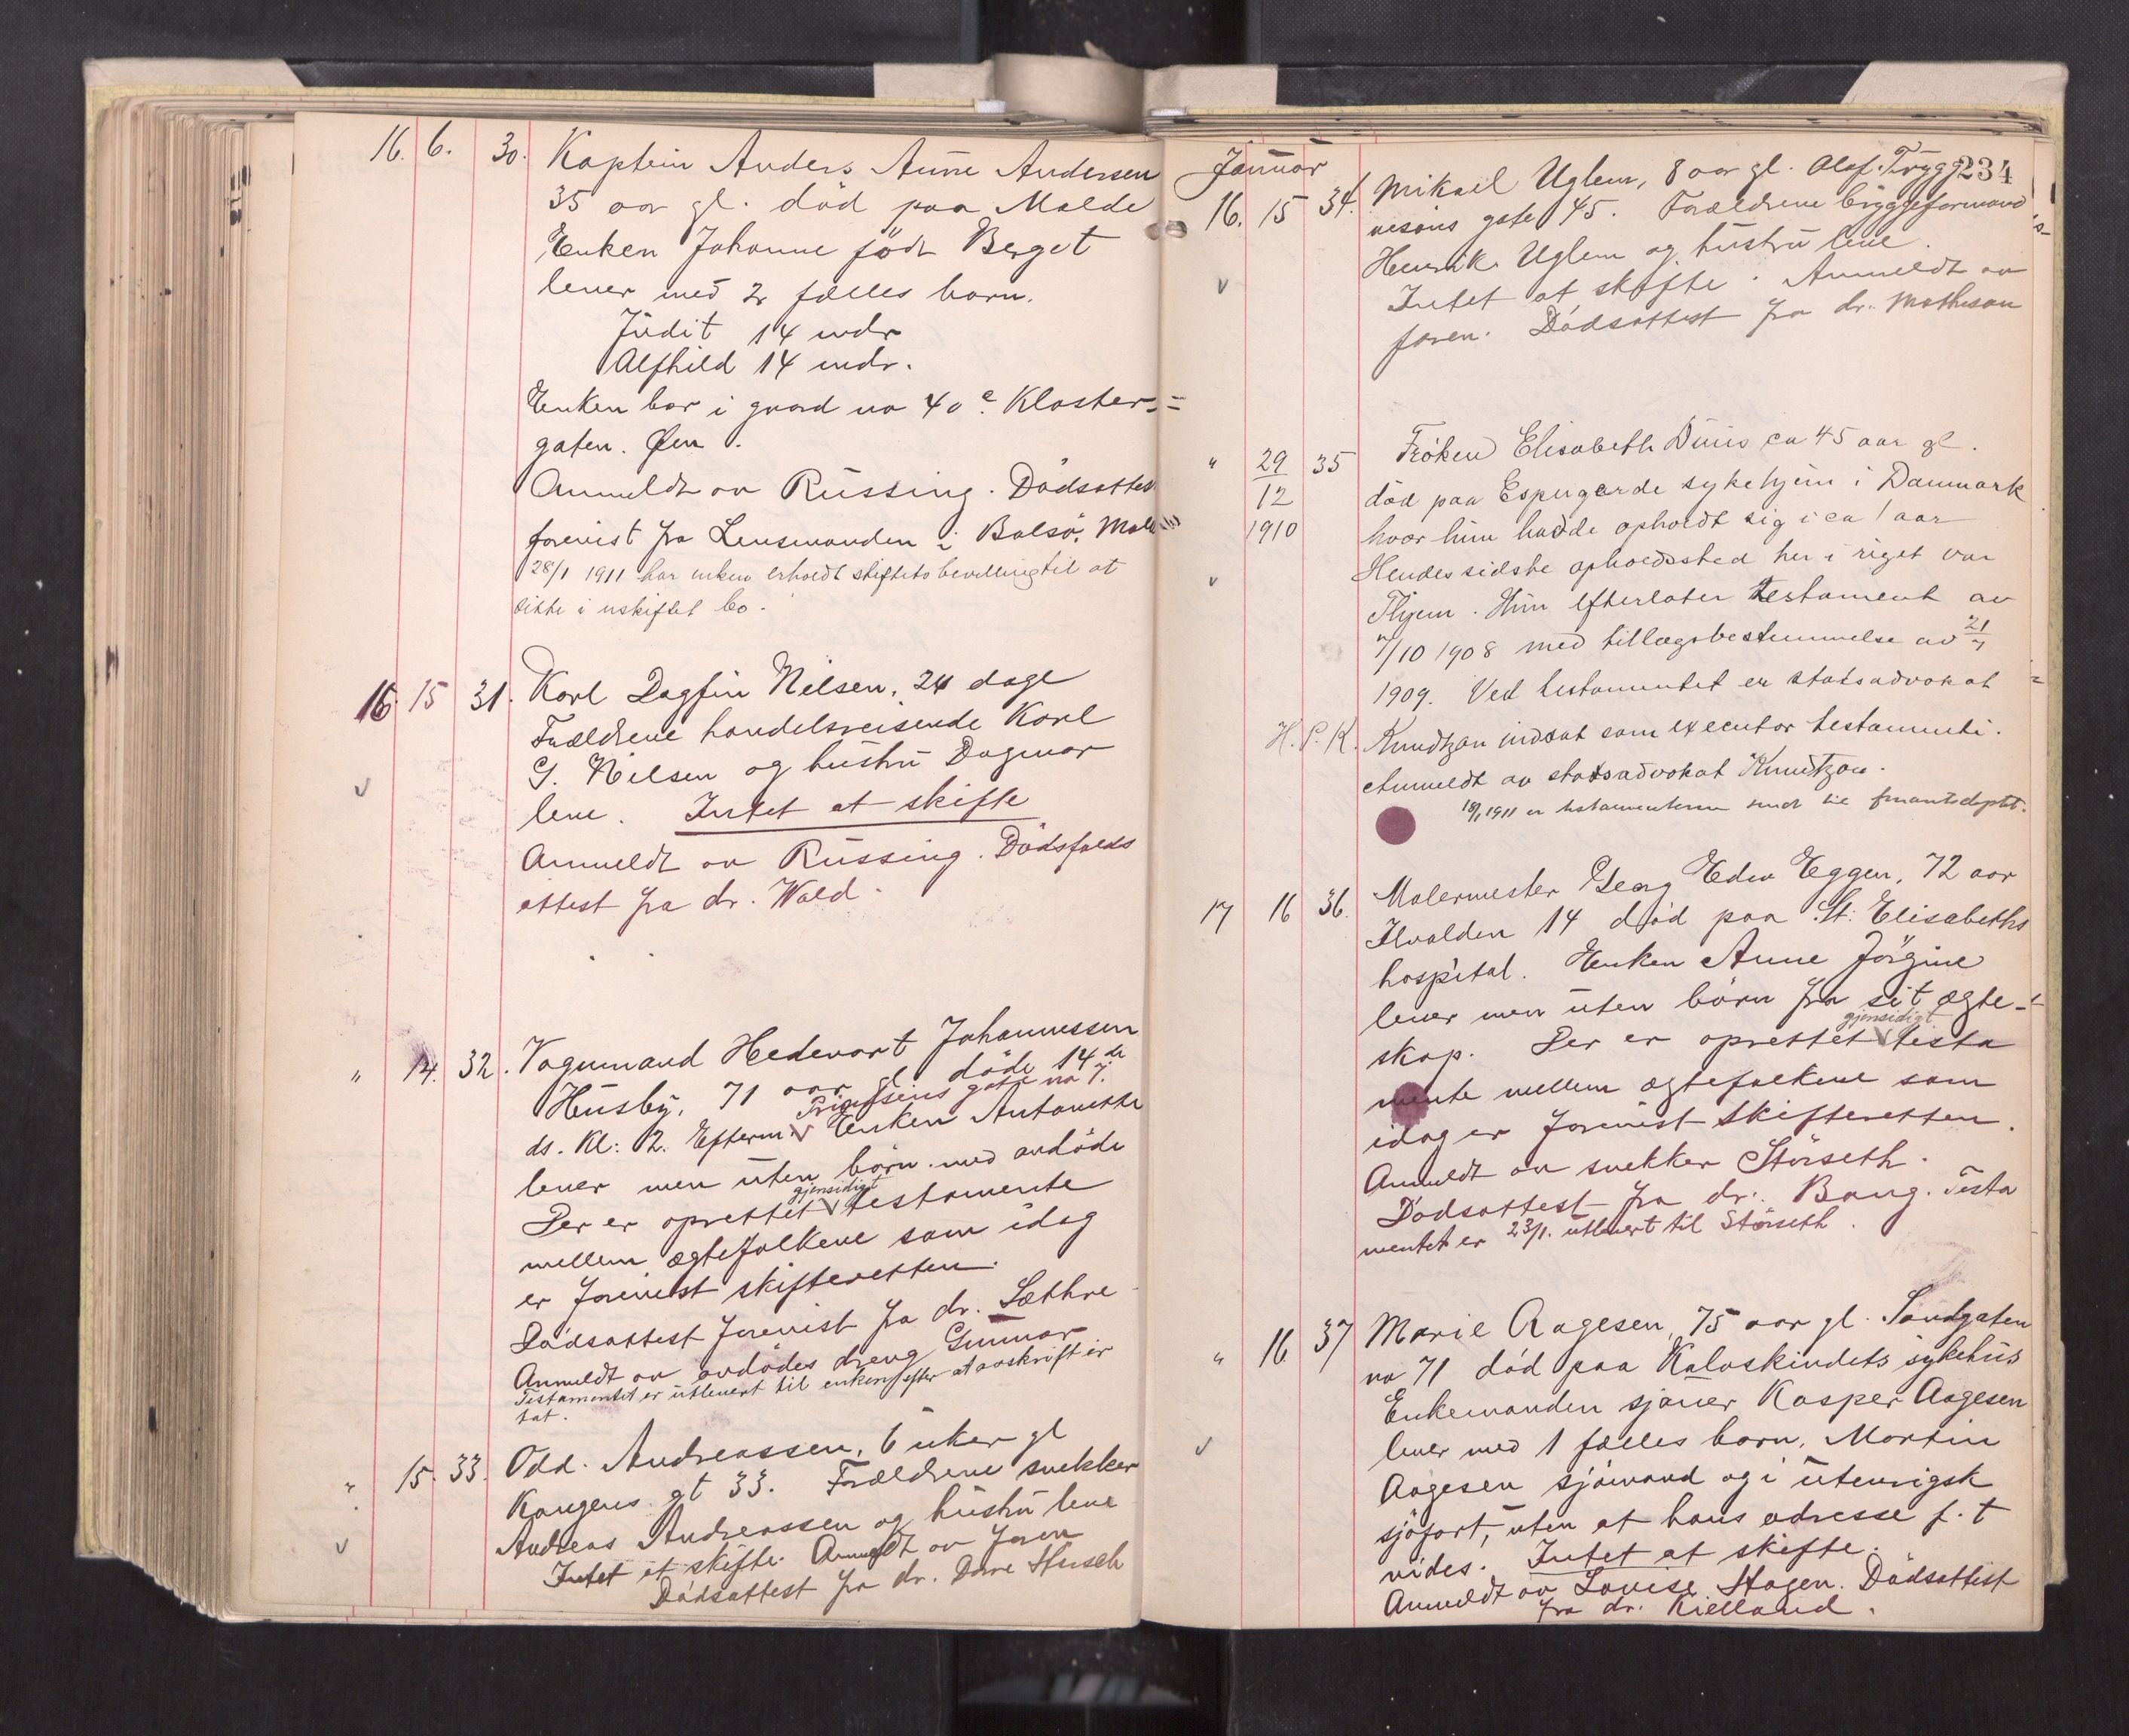 16. 6. 30. Kaptein Anders Aune Andersen
35 aar gl. död paa Molde
Enken Johanne födt Berget
lever med 2 fælles barn.
Judit 14 mdr
Alfhild 14 mdr.
Enken bor i gaard no 40 e. Kloster=
gaten. Øen.
Anmeldt av Russing. Dödsattest
forevist fra Lensmanden i Bolsö, Molde
28/1 1911 har enken erholdt skiftets bevilling til at
sitte i uskiftet bo.
16. 15 31. Karl Dagfin Nilsen, 24 dage
Forældrene handelsreisende Karl
G. Nilsen og hustru Dagmar
leve. Intet at skifte
Anmeldt av Russing. Dödsfalds
attest fra dr. Wald.
" 14. 32. Vognmand Hedevart Johannessen
Husby, 71 aar gl. döde 14de
Prinsens gate no 7.
ds. Kl: 2. Efterm. Enken Antonette
lever men uten börn med avdöde
gjensidigt
Der er oprettet testamente
mellem ægtefolkene som idag
er forevist skifteretten.
Dödsattest forevist fra dr. Sæthre
Anmeldt av avdödes dreng Gunnar
Testamentet er utlevert til enken efter at avskrift er
tat.
" 15. 33. Odd Andreassen, 6 uker gl
Kongens gt 33. Forældrene snekker
Andreas Andreassen og hustru leve
Intet at skifte. Anmeldt av faren
Dödsattest fra dr. Dave Husch
Januar
234
16. 15 34. Mikael Uglem, 8 aar gl. Olaf Trygg
vesöns gate 45. Forældrene bryggeformand
Henrik Uglem og hustru leve.
Intet at skifte. Anmeldt av
faren. Dödsattest fra dr. Matheson
" 29/12 1910 35 Fröken Elisabeth Duus ca 45 aar gl.
död paa Espergærde sykehjem i Danmark
hvor hun hadde opholdt sig i ca 1 aar
Hendes sidste opholdssted her i riget var
Thjem. Hun efterlater testament av
7/10 1908 med tillægsbestemmelse av 21/7
1909. Ved testamentet er statsadvokat
H. P. K. Knudtzon indsat som executor testamenti.
Anmeldt av statsadvokat Knudtzon.
18/1 1911 er testamenterne sendt til finantsdeptet.
17 16 36. Malermester Georg Edv Eggen, 72 aar
Ilvolden 14 död paa St: Elisabeths
hospital. Enken Anne Jörgine
lever men uten börn fra sit ægte-
skap. Der er oprettet gjensidigt testa
mente mellem ægtefolkene som
idag er forevist skifteretten.
Anmeldt av snekker Störseth.
Dödsattest fra dr. Bang. Testa
mentet er 23/1. utlevert til Störseth.
" 16. 37 Marie Aagesen, 75 aar gl. Sandgaten
no 71 död paa Kalvskindets sykehus
Enkemanden sjauer Kasper Aagesen
lever med 1 fælles barn, Martin
Aagesen sjömand og i utenrigsk
sjöfart, uten at hans adresse f. t
vides. Intet at skifte.
Anmeldt av Lovise Hagen. Dödsattest
fra dr. Kielland.